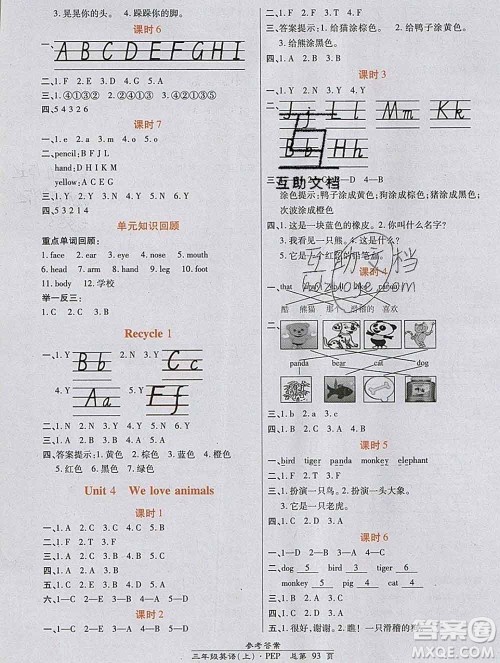 3. 晃晃你的头。 4. 跺跺你的脚。
课时 6
一、
A B C D E F G H I
二、1. F 2. E 3. D 4. G 5. A
三、1. ④①③② 2. ④①③② 3. ②④①③
四、5 4 3 2 6
课时 7
一、1. e 2. a 3. o 4. e
二、pencil: B F J L
hand: D H I K M
yellow: A C E G
三、1. Y 2. Y 3. Y 4. N 5. N
四、5 3 2 1 4
单元知识回顾
重点单词回顾：
1. face 2. ear 3. eye 4. nose 5. mouth
6. head 7. arm 8. hand 9. leg 10. foot
11. body 12. 学校
举一反三：
1. hand 2. mouth 3. face
Recycle 1
一、1. Y 2. Bb 3. Cc
4. Y 5. Aa 6. Ff
二、1. N 2. N 3. Y 4. N 5. Y 6. Y
三、答案提示：1. 绿色 2. 棕色 3. 蓝色 4. 白色
5. 红色 6. 黑色 7. 绿色
Unit 4 We love animals
课时 1
一、1. A 2. C 3. C 4. A 5. C
五、1. B 2. A 3. B 4. B 5. A
六、1—D 2—C 3—E 4—A 5—B
课时 2
一、1. N 2. Y 3. Y 4. N
二、1. B 2. B 3. A 4. C 5. A
三、答案提示：1. 给猫涂棕色。 2. 给鸭子涂黄色。
3. 给熊涂黑色。
四、1. F 2. F 3. F 4. T 5. F
课时 3
一、1. A 2. C 3. B 4. B 5. A
二、
Jj Ll Mm Kk
Bb Hh
涂色提示：鸭子涂成黄色；狗涂成棕色；猪涂成黑色；
次波涂成橙色
五、1. 这是一块蓝色的橡皮。 2. 你叫什么名字?
3. 我看见一只熊。 4. 这是什么?
课时 4
酷 熊猫 那 滑稽的 喜欢
二、
panda bear cat dog
三、1. b 2. a 3. c
四、1. A 2. B 3. B 4. A 5. A
课时 5
一、bird tiger panda monkey elephant
三、1. 扮演一只鸟。 2. 扮演一头大象。
3. 它是一只老虎。
课时 6
一、1—D 2—B 3—A 4—C
monkey pig bird
三、1. N 2. Y 3. N 4. Y 5. Y
四、1. A 2. B 3. B 4. A
参考答案
三年级英语(上)·PEP 总第 93 页
互助文档
互助文档
作业帮答案